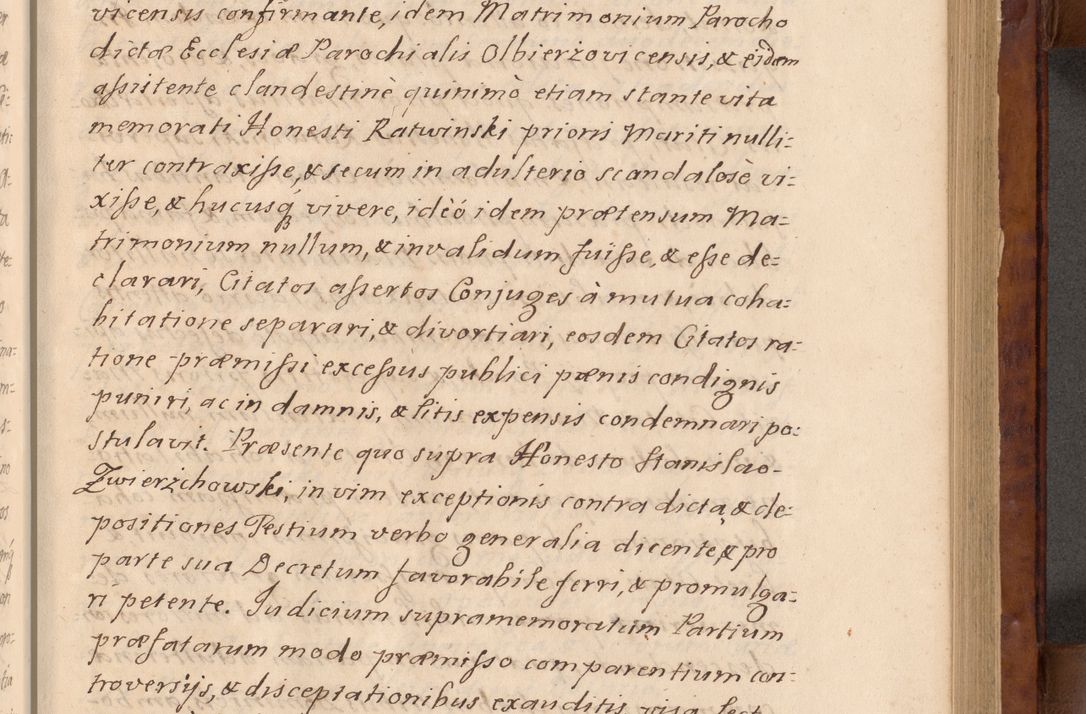 vicensis confirmante, idem Matrimonium Parocho
dictæ Ecclesiæ Parochialis Olbierzovicensis, & eidem
assistente clandestinè quinimò etiam stante vita
memorati Honesti Ratwinski prioris Mariti nulli=
ter contraxisse, & secum in adulterio scandalosè vi=
xisse, & hucusq3 vivere, idèó idem prætensum Ma=
trimonium nullum, & invalidum fuisse, & esse de=
clarari, Citatos assertos Conjuges à mutua coha=
bitatione separari, & divortiari, eosdem Citatos ra=
tione præmissi excessus publici pœnis condignis
puniri, ac in damnis, & litis expensis condemnari po=
stulavit. Præsente quo supra Honesto Stanislao
Zwierzchowski, in vim exceptionis contra dicta, & de=
positiones Testium verbo generalia dicente, & pro
parte sua Decretum favorabile ferri, & promulga=
ri petente. Iudicium supramemoratum Partium
præfatarum modo præmisso comparentium con=
troversijs, & disceptationibus exauditis visa lect